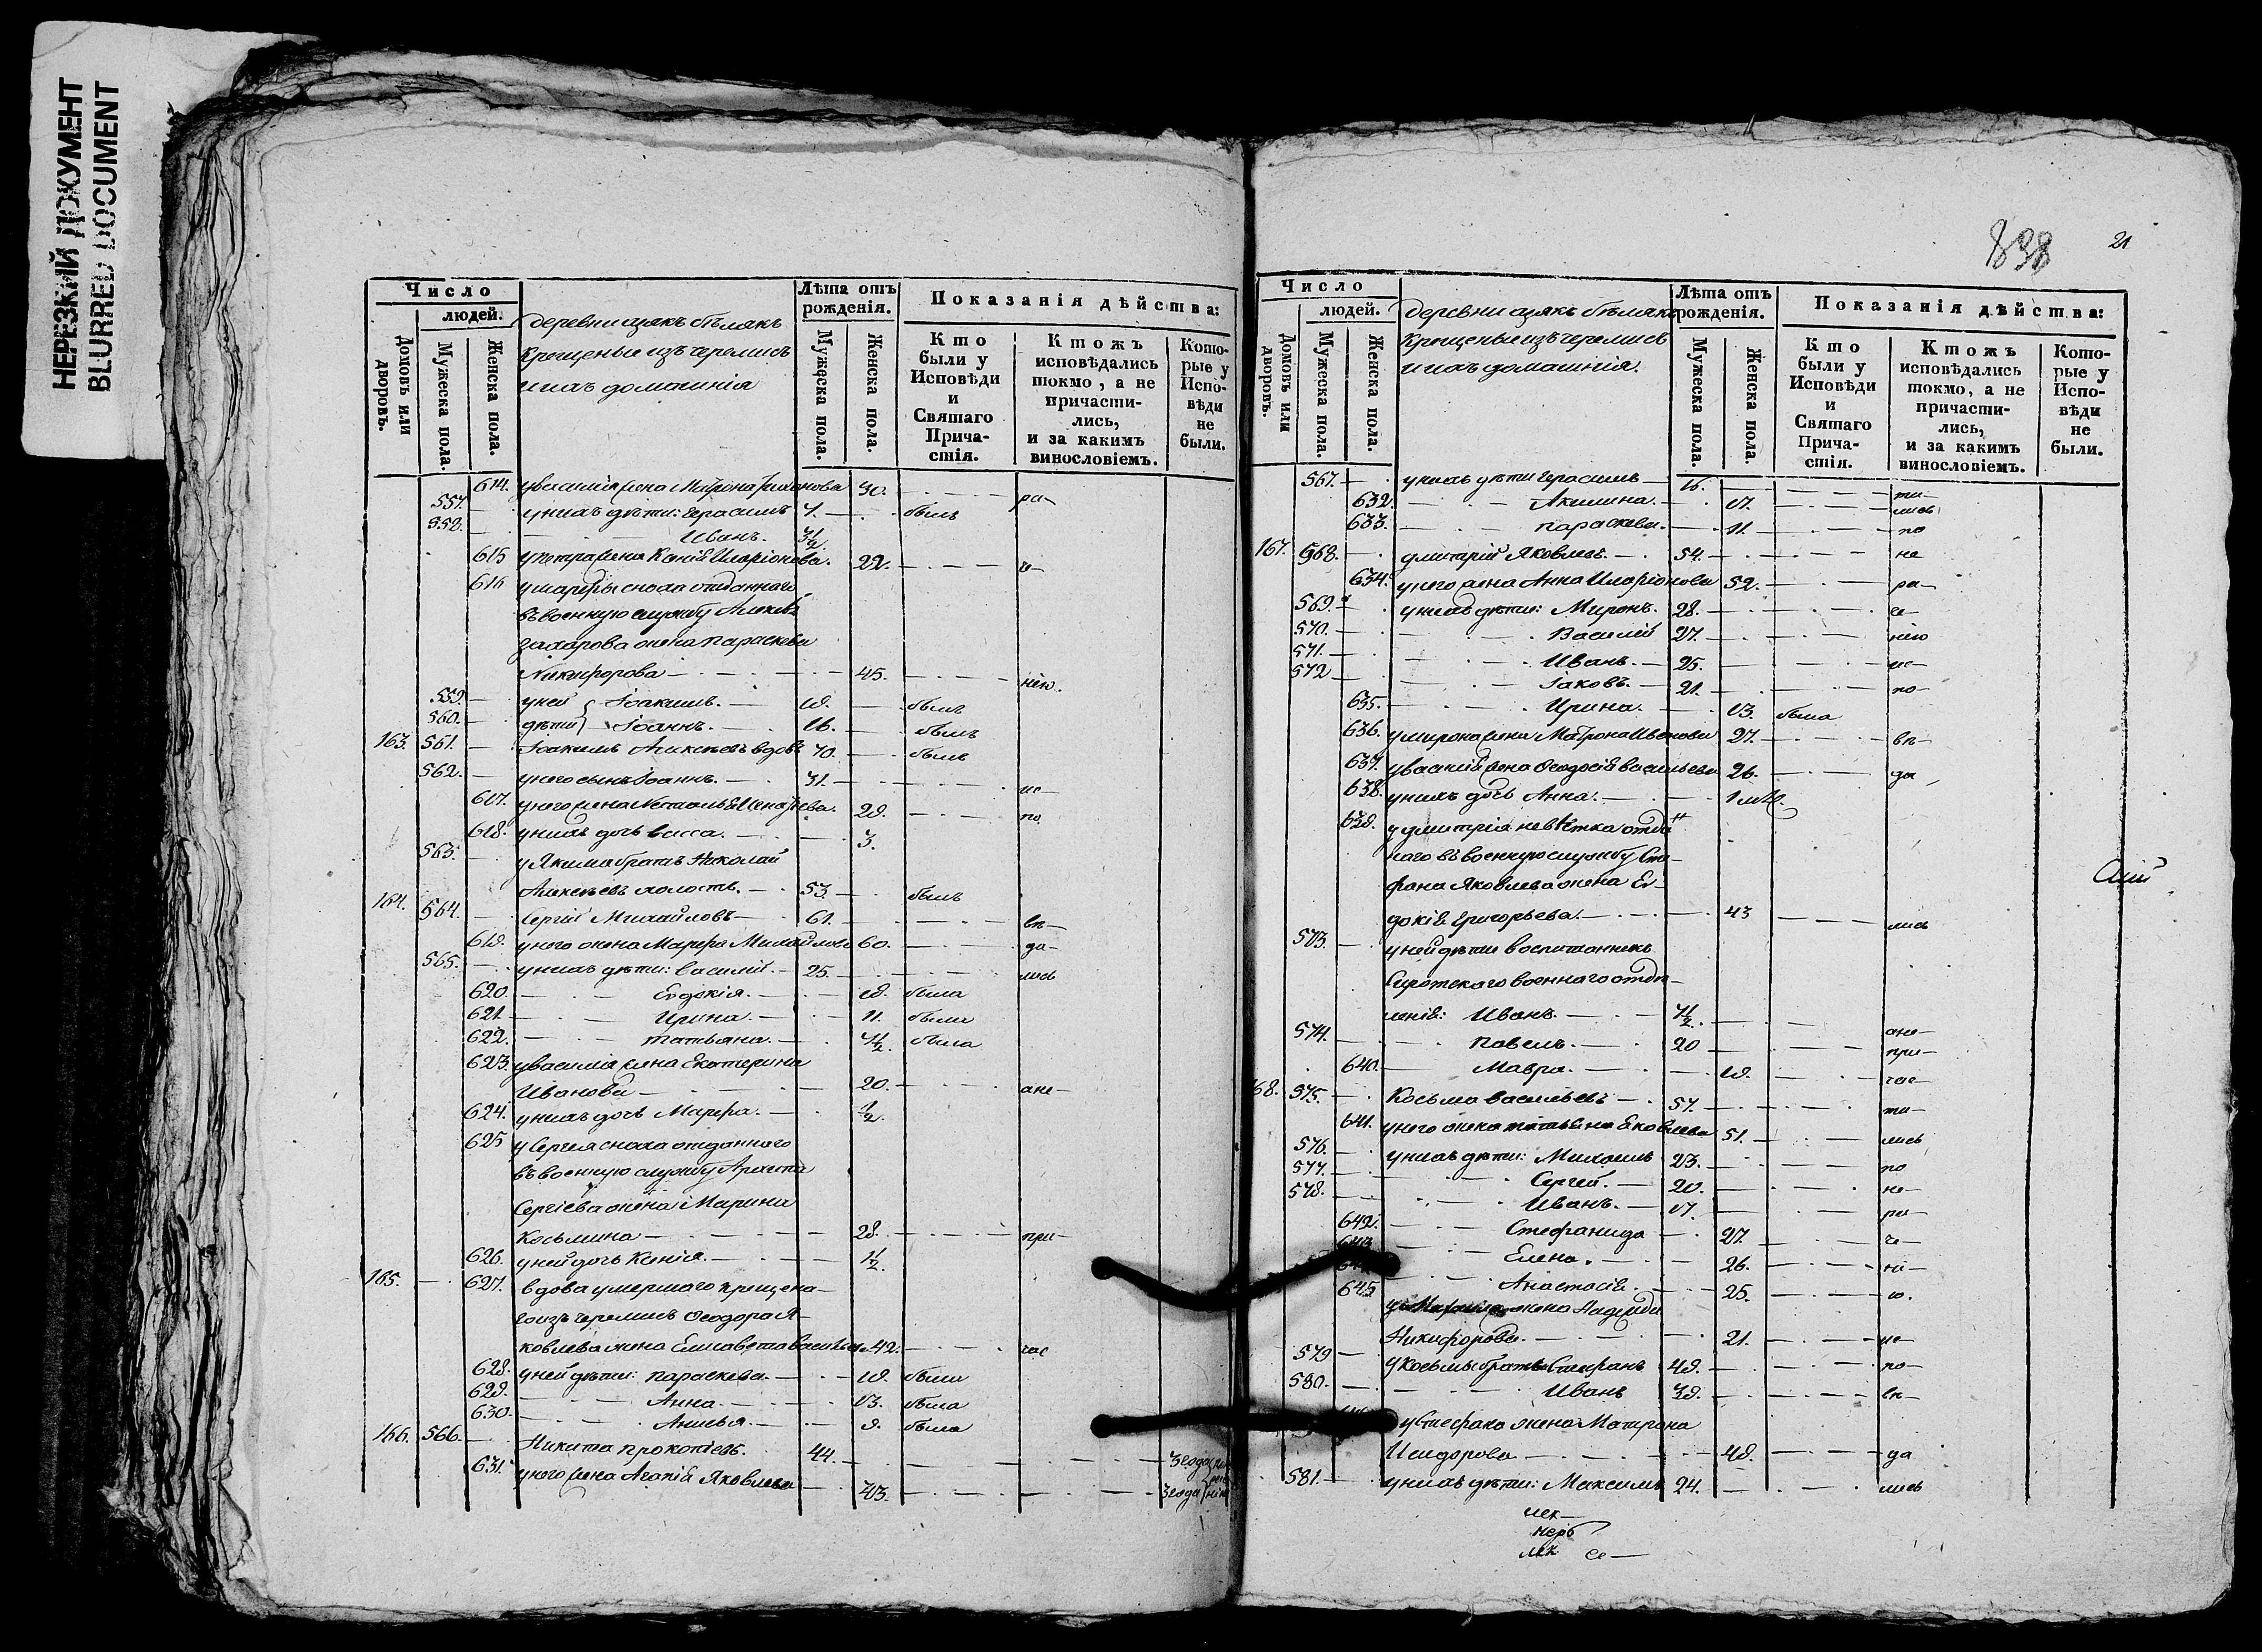 НЕРЕЗКИЙ ДОКУМЕНТ
BLURRED DOCUMENT
Число
людей.
Домовъ или дворовъ.
Мужеска пола.
Женска пола.
деревни
крещеные изъ черемисъ
и ихъ домашнія
Лѣта отъ рожденія.
Мужеска пола.
Женска пола.
Показанія дѣйства:
Кто были у Исповѣди и Святаго Причастія.
Ктожъ исповѣдались токмо, а не причастились, и за какимъ винословіемъ.
Которые у Исповѣди не были.
614. у василія жена Матрона 30. ра-
557. у нихъ дѣти: Герасимъ 7. былъ
558. Иванъ. 3 1/2
615 у петра жена Ксенія Иларіонова. 22.
616 у марфы сноха отданнаго
въ военную службу
захарова жена параскева
Никифорова 45. нію.
559. у ней Іоакимъ. былъ
560. дѣти Іоаннъ. 16. былъ
163. 561. Іоакимъ Алексѣевъ вдовъ 70. былъ
562. у него сынъ Іоаннъ. 31. не-
617. у него жена 29. по
618. у нихъ дочь васса. 3.
563. у Якима братъ Николай
Алексѣевъ холостъ. 53 былъ
164. 564. Сергій Михайловъ 61. вѣ-
619. у него жена Марфа Михайлова 60. да-
565. у нихъ дѣти: василій. 25. лись
620. Евдокія. 19. была
621. Ирина. 11. была
622. татьяна. 7 1/2 была
623. у василія жена Екатерина
Иванова 20. а не-
624. у нихъ дочь Марфа. 1/2.
625 у Сергія сноха отданнаго
въ военную службу
Сергіева жена Марина
Косьмина 28. при-
626. у ней дочь Ксенія. 1 1/2.
165. 627. вдова умершаго крещена-
го изъ черемисъ Ѳеодора Я-
ковлева жена Елисавета 42. час
628. у ней дѣти: параскева. 19. была
629. Анна. 13. была
630. Анисья. 9. была
166. 566. Никита прокопіевъ. 44. 3 года
631. у него жена Агапія Яковлева 43. 3 года
838
21
Число
людей.
Домовъ или дворовъ.
Мужеска пола.
Женска пола.
деревни
крещеные изъ черемисъ
и ихъ домашнія.
Лѣта отъ рожденія.
Мужеска пола.
Женска пола.
Показанія дѣйства:
Кто были у Исповѣди и Святаго Причастія.
Ктожъ исповѣдались токмо, а не причастились, и за какимъ винословіемъ.
Которые у Исповѣди не были.
567. у нихъ дѣти Герасимъ 16. ти-
632. Акилина. 17. лись
633. параскева. 11. по
167. 568. дмитрій Яковлевъ. 54. не
634. у него жена Анна Иларіонова 52. ра-
569. у нихъ дѣти: Миронъ. 28.
570. Василій 27. нію
571. Иванъ. 25. ис-
572 Іаковъ. 21. по-
635. Ирина. 13. была
636. у мирона жена Матрона Иванова 27. вѣ-
637. у василія жена Ѳеодосія васильева 26. да
638. у нихъ дочь Анна. 1
639. у дмитрія невѣстка отдан
наго въ военную службу Сте-
фана Яковлева жена Ев-
докія Григорьева. 43 лись
573. у ней дѣти воспитанникъ
Сиротскаго военнаго отдѣ-
ленія: Иванъ. 7 1/2 а не-
574. павелъ. 20 при-
640. Мавра. 19. час-
168. 575. Косьма васильевъ 57. ти-
641. у него жена татьяна Яковлева 51. лись
576. у нихъ дѣти: Михаилъ 23. по
577. Сергей. 20. не-
578. Иванъ. 17. ра-
642. Стефанида 27. че-
643 Елена. 26. ні-
Анастасія. 25. ю.
645 жена Надежда
Никифорова. 21. ис-
579 У Косьмы братъ Стефанъ 49. по-
580. Иванъ 39. вѣ-
у Стефана жена Матрона
Исидорова 49. да
581. у нихъ дѣти: Максимъ 24. лись